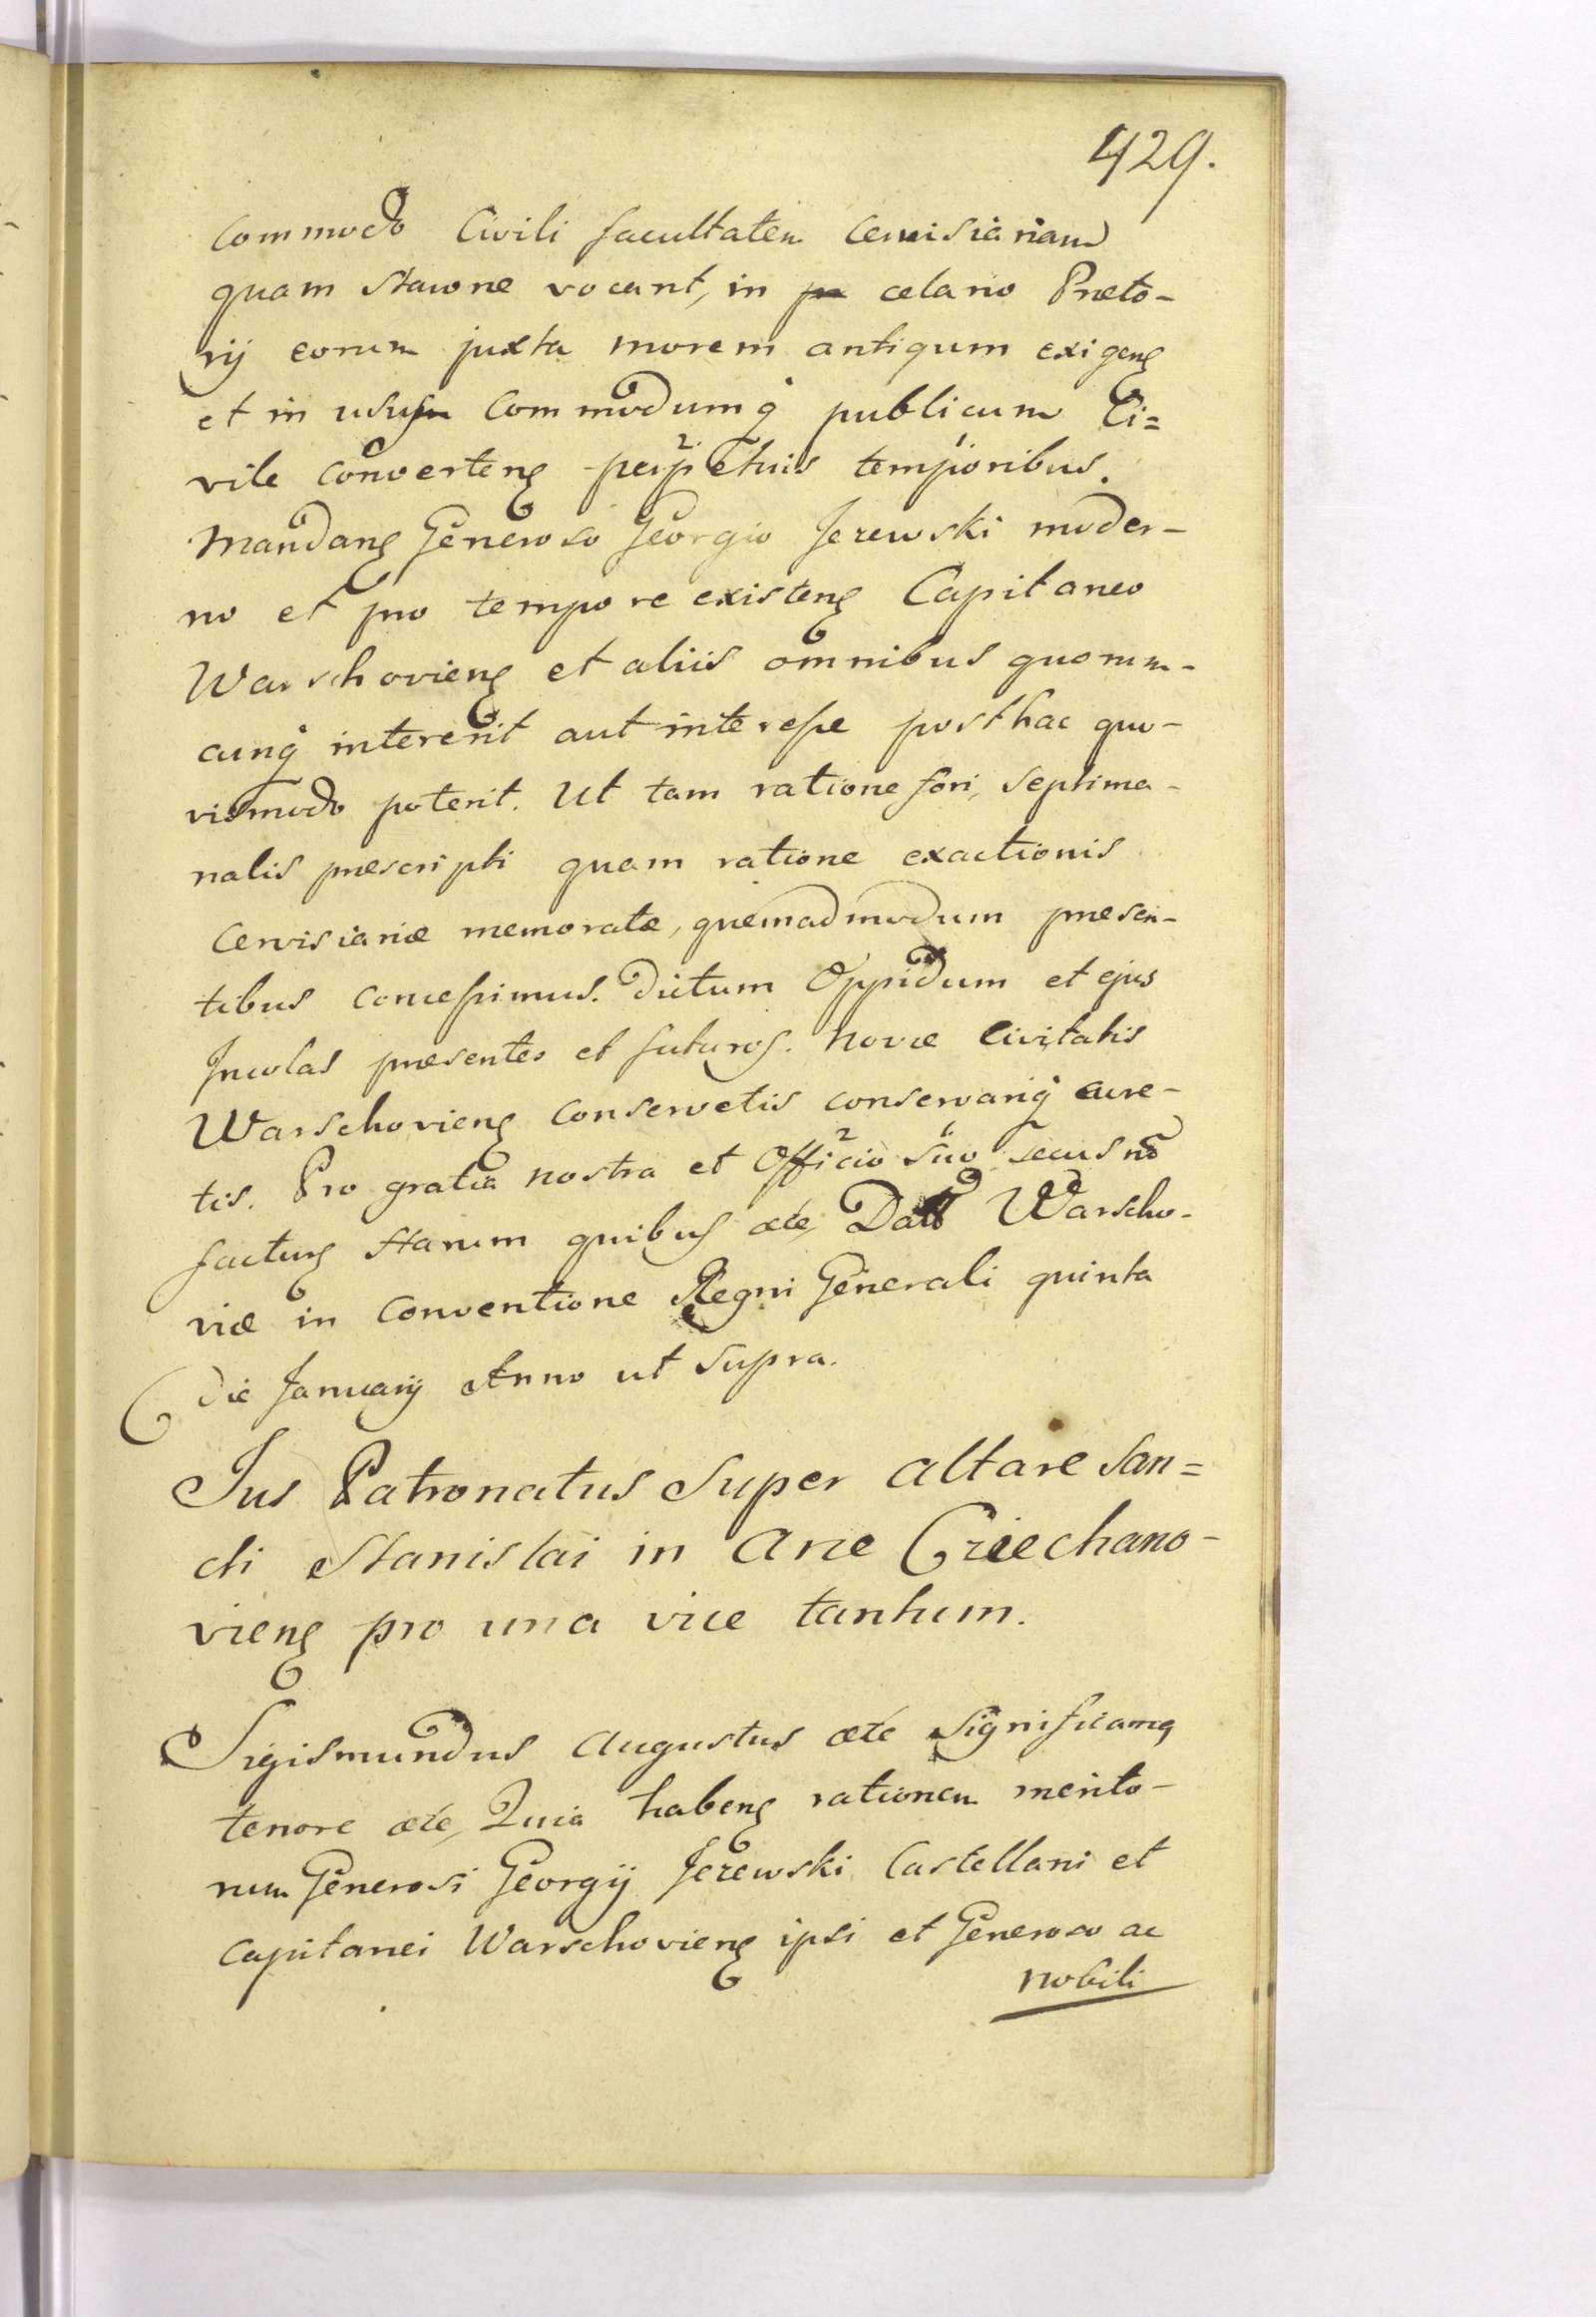 429.
commodo Civili facultatem cervisiariam
quam Stawne vocant, in celario Præto-
rij eorum juxta morem antiqum exigenꝭ
et in usum commodumq̇ publicum Ci=
vile convertenꝭ perpetuis temporibus.
Mandanꝭ Generoso Georgio Jezewski moder-
no et pro tempore existenꝭ Capitaneo
Warschovienꝭ et aliis omnibus quorum-
cunq̇ intererit aut interesse posthac quo-
vismodo poterit. Ut tam ratione fori, septima-
nalis præscripti quam ratione exactionis
Cervisiariæ memoratæ, quemadmodum præsen-
tibus concessimus. Dictum Oppidum et ejus
Incolas præsentes et futuros. Novæ Civitatis
Warschovienꝭ conservetis conservariq̇ cure-
tis. Pro gratia nostra et Officio suo secus nō
facturꝭ Harum quibus ætc, Dat Warscho-
viæ in Conventione Regni Generali quinta
die Januarij Anno ut supra.
Jus Patronatus Super altare San=
cti Stanislai in Arce Cziechano-
vienꝭ pro una vice tantum.
Sigismundus Augustus ætc Significamꝗ
tenore ætc, Quia habenꝭ rationem merito-
rum Generosi Georgij Jezewski Castellani et
Capitanei Warschovienꝭ ipsi et Generoso ac
nobili